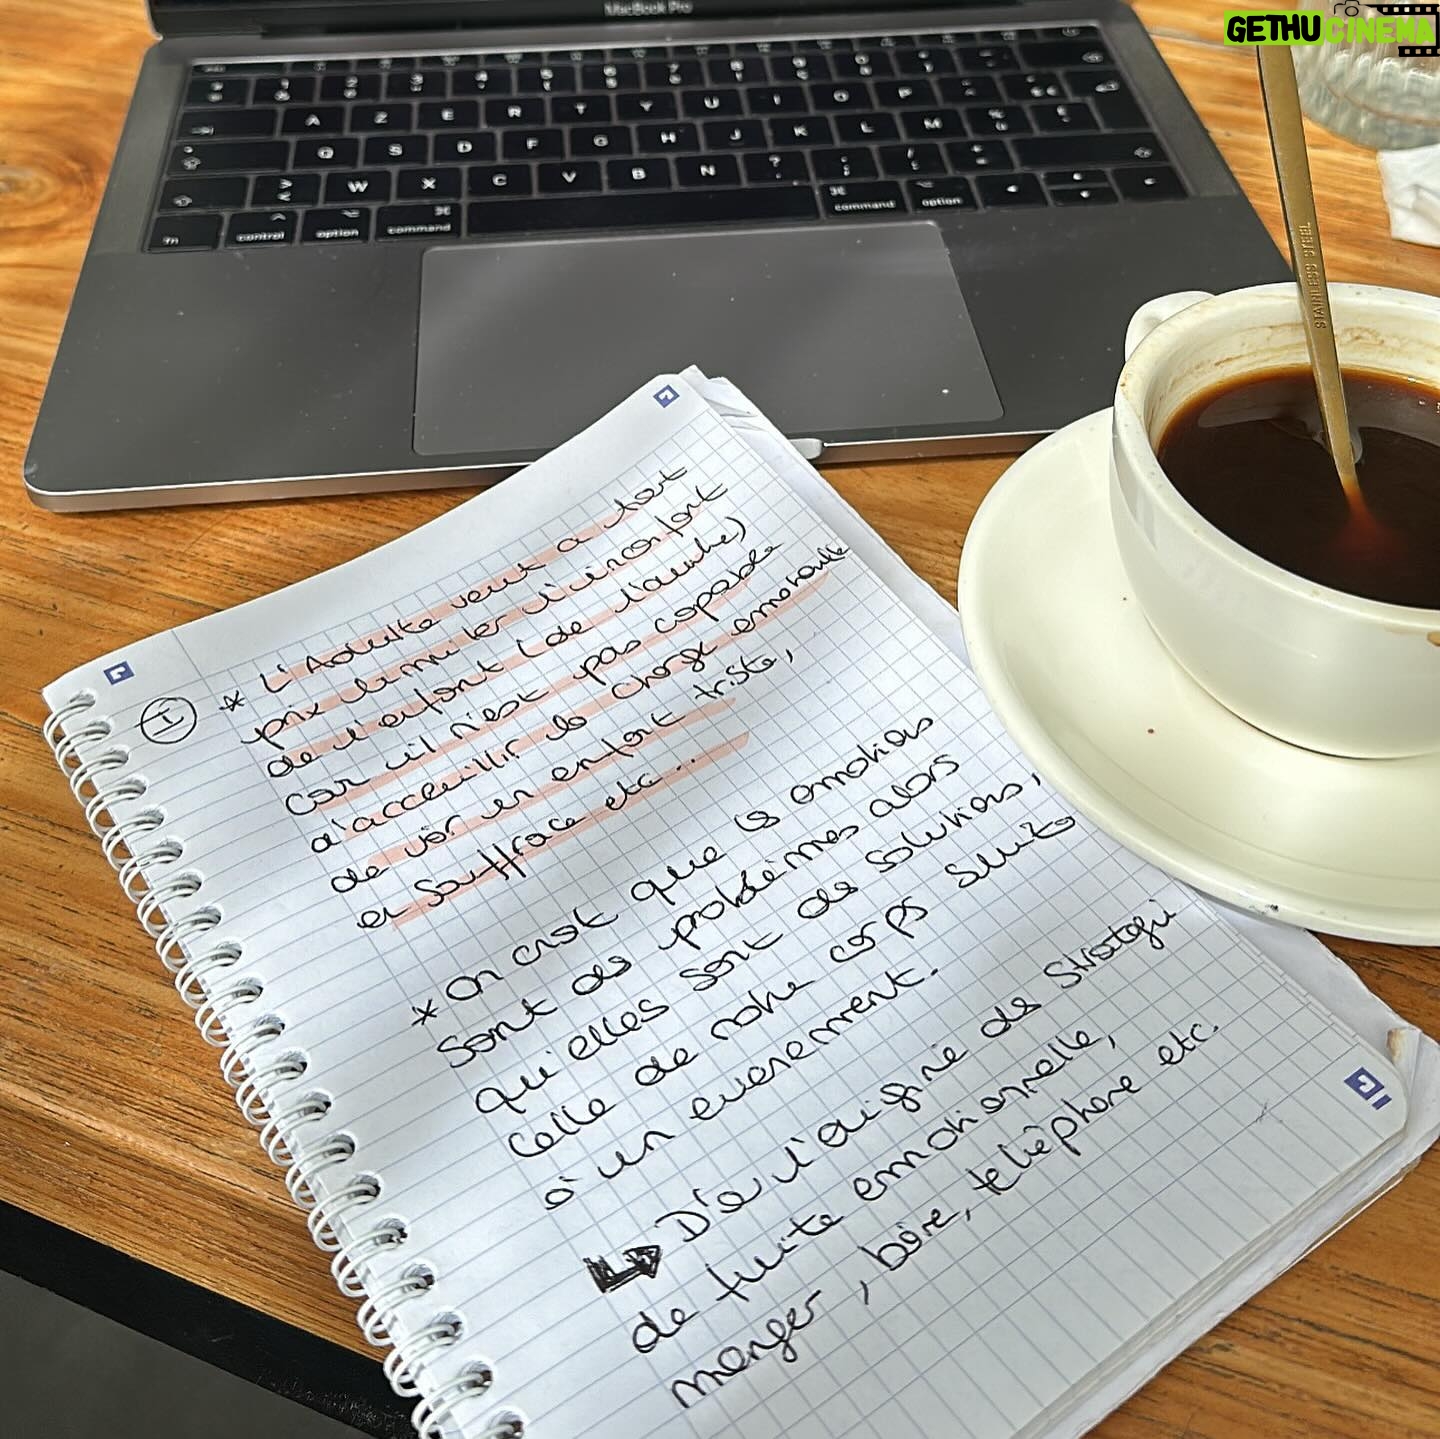 MacBook Pro
GETHUCINEMA
A Z E R T Y U I O P
Q S D F G H J K L M
W X C V B N
fn control option command command option
STAINLESS STEEL
I
* L'Adulte veut à tout
prix limiter l'inconfort
de l'enfant (de l'autre)
car il n'est pas capable
d'accueillir la charge émotionnelle
de voir un enfant triste,
en souffrance etc...
* On croit que les émotions
sont des problèmes alors
qu'elles sont des solutions,
celle de notre corps suite
à un évènement.
D'où l'origine de stratégie
de fuite émotionnelle,
manger, boire, téléphone etc.